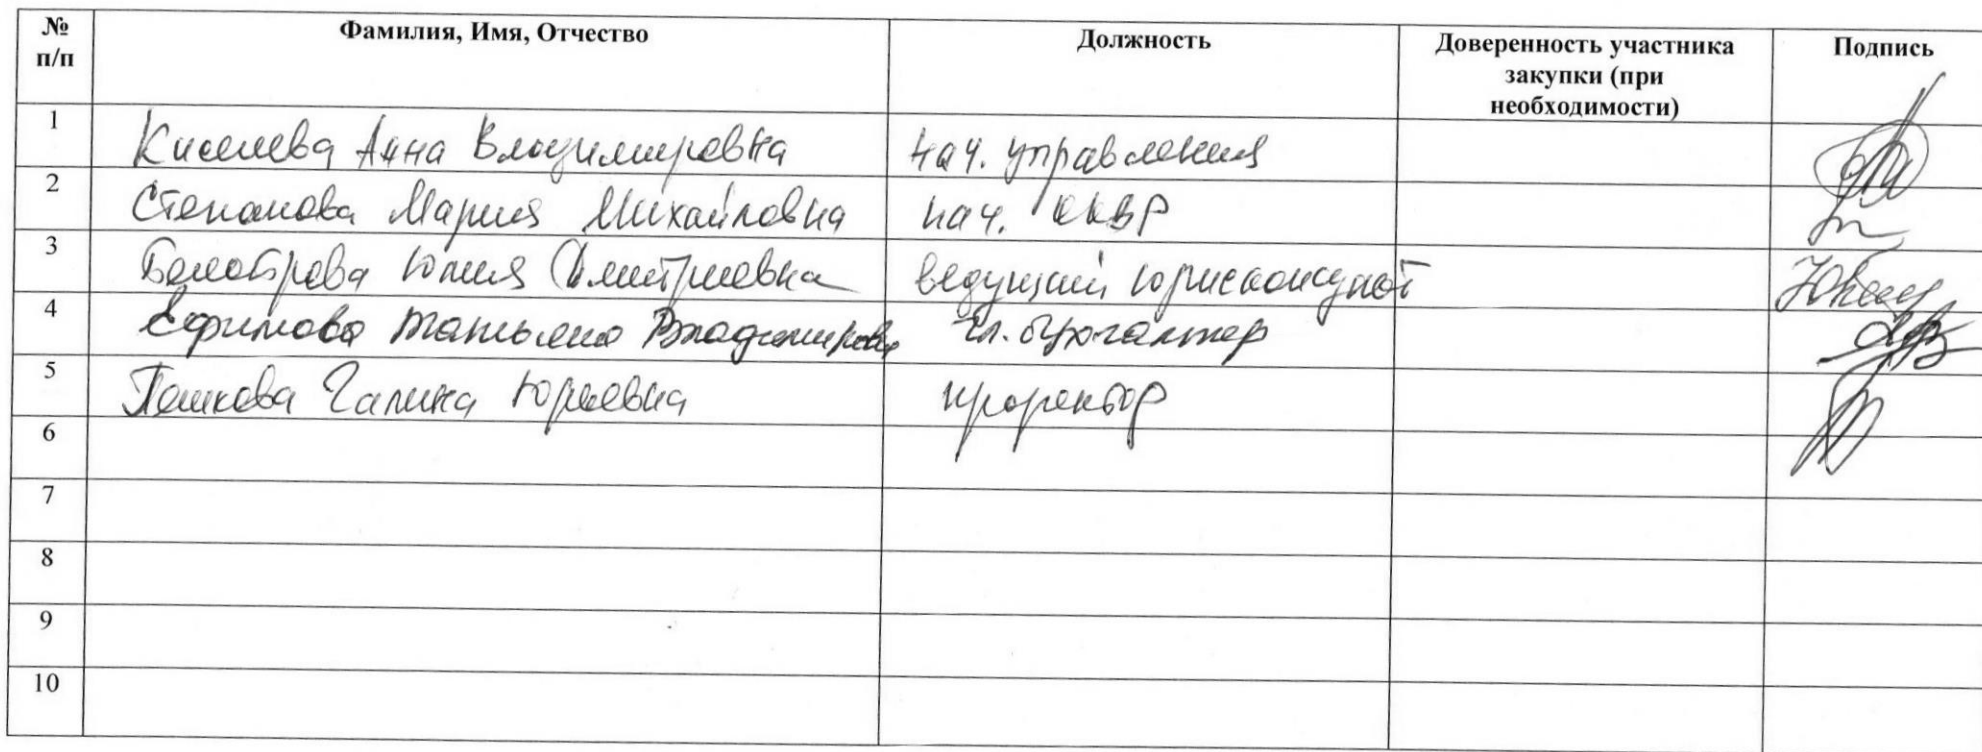 № п/п Фамилия, Имя, Отчество Должность Доверенность участника закупки (при необходимости) Подпись
1 Киселева Анна Владимировна нач. управления
2 Степанова Мария Михайловна нач. ККВР
3 Белоброва Юлия Дмитриевна ведущий юрисконсульт
4 Ефимова Татьяна Владимировна гл. бухгалтер
5 Пешкова Галина Юрьевна проректор
6
7
8
9
10